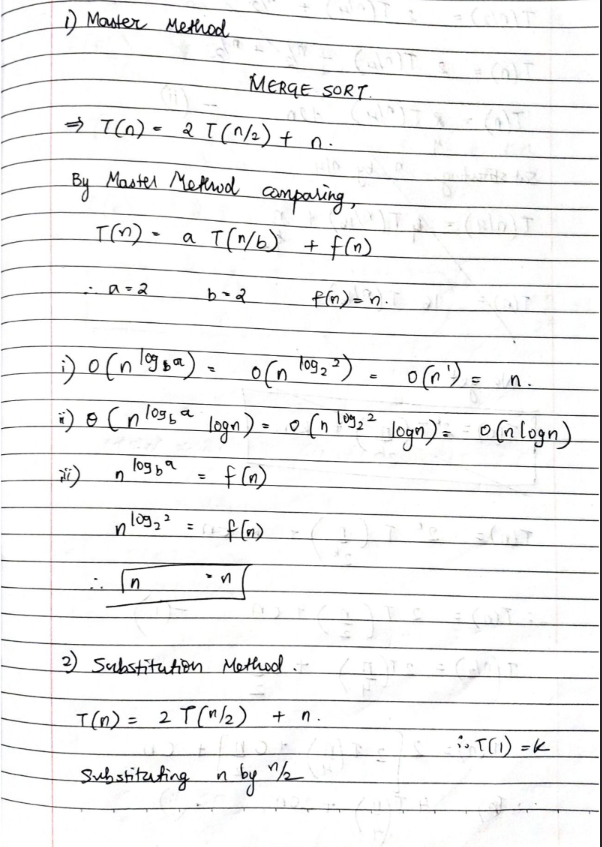 1) Master Method
MERGE SORT.
⇒ T(n) = 2 T(n/2) + n.
By Master Method comparing,
T(n) = a T(n/b) + f(n)
∴ a = 2 b = 2 f(n) = n.
i) O(n^log_b a) = O(n^log_2 2) = O(n^1) = n.
ii) θ (n^log_b a log n) = O (n^log_2 2 log n) = O(n log n)
iii) n^log_b a = f(n)
n^log_2 2 = f(n)
∴ n = n
2) Substitution Method.
T(n) = 2 T(n/2) + n.
∴ T(1) = K
Substituting n by n/2